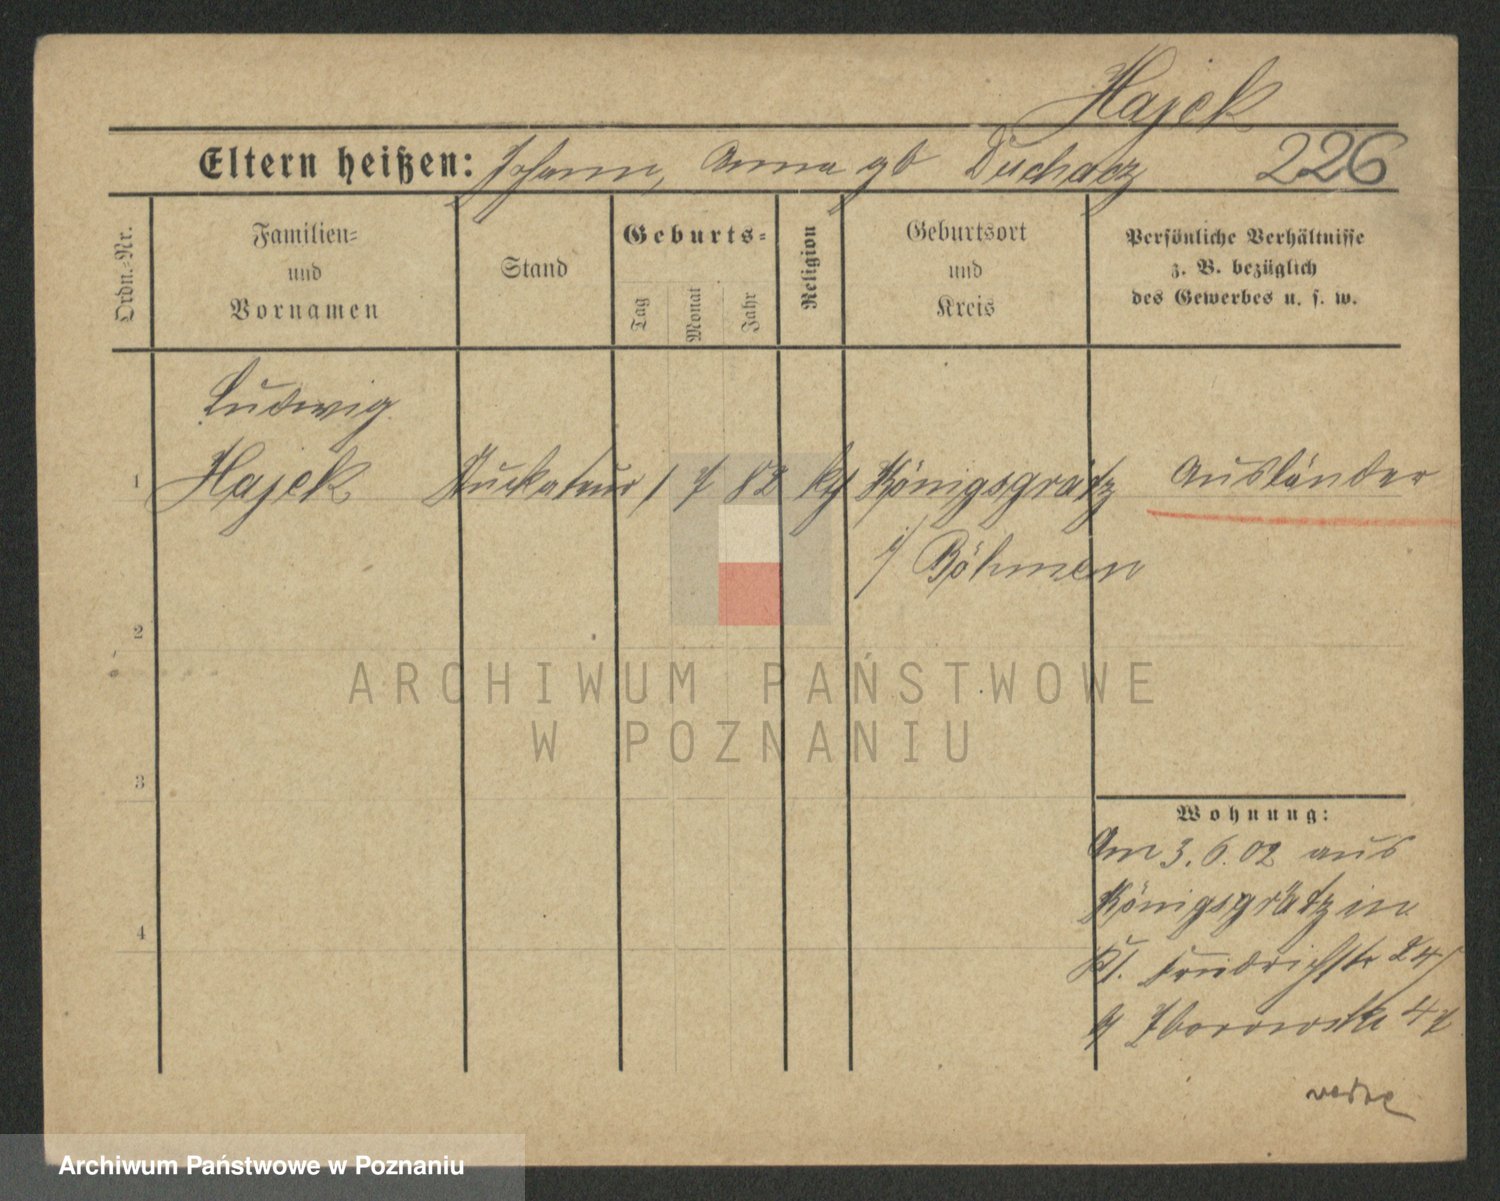 Hajek
Eltern heißen: Johann, Anna gb Duchacz 226
Ordn.-Nr.
Familien-
und
Vornamen
Stand
Geburts-
Tag
Monat
Jahr
Religion
Geburtsort
und
Kreis
Persönliche Verhältnisse
z. B. bezüglich
des Gewerbes u. s. w.
Ludwig
1 Hajek Stuckateur 1 7 82 kth Königsgrätz Ausländer
i/ Böhmen
2
ARCHIWUM PAŃSTWOWE
W POZNANIU
3
Wohnung:
Am 3.6.02 aus
Königsgrätz in
4
Friedrichstr
Zborowska
Archiwum Państwowe w Poznaniu